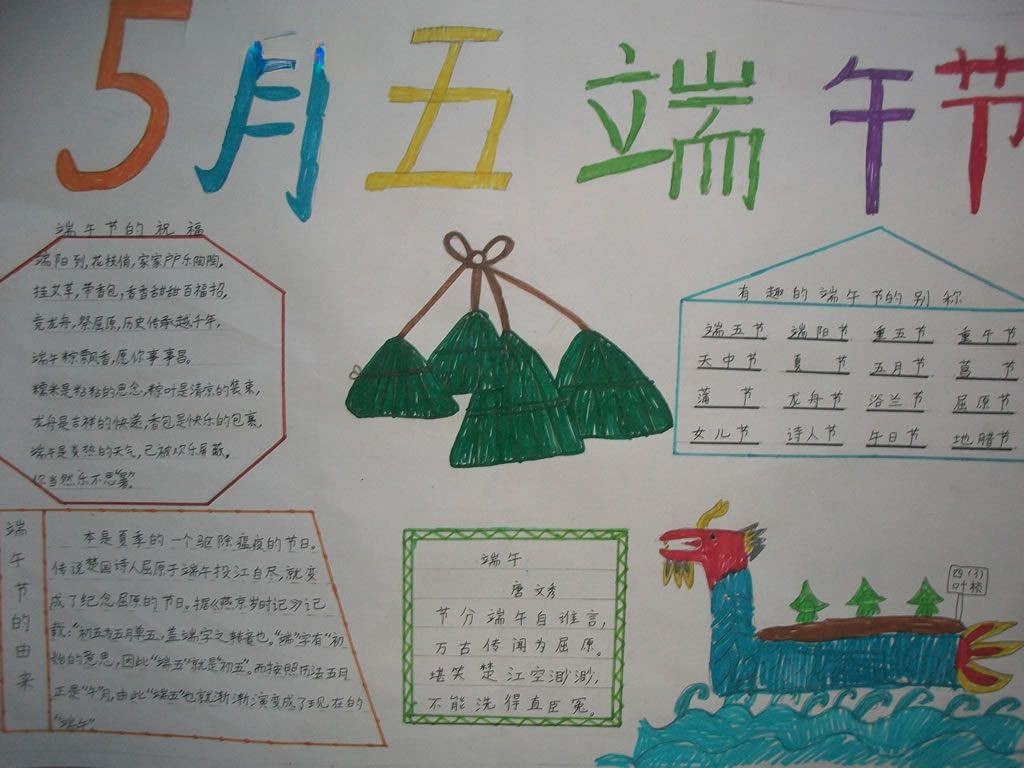 5月五端午节
端午节的祝福
端阳到,花枝俏,家家户户乐陶陶,
挂艾草,带香包,香香甜甜百福招,
竞龙舟,祭屈原,历史传承越千年,
端午粽飘香,愿你事事昌。
糯米是粘粘的思念,粽叶是清凉的装束,
龙舟是吉祥的快递,香包是快乐的包裹,
端午是炎热的天气,已被欢乐屏蔽。
你当然“乐不思‘暑’”
有趣的端午节的别称
端五节 端阳节 重五节 重午节
天中节 夏节 五月节 菖节
蒲节 龙舟节 浴兰节 屈原节
女儿节 诗人节 午日节 地腊节
端午节的由来
本是夏季的一个驱除瘟疫的节日。
传说楚国诗人屈原于端午投江自尽,就变
成了纪念屈原的节日。据《燕京岁时记》记
载:“初五为五月单五,盖端字之转音也。”“端”字有“初
始的意思,因此“端五”就是“初五”。而按照历法五月
正是“午”月,由此“端五”也就渐渐演变成了现在的
“端午”
端午
唐 文秀
节分端午自谁言,
万古传闻为屈原。
堪笑楚江空渺渺,
不能洗得直臣冤。
四(3)
叶榕